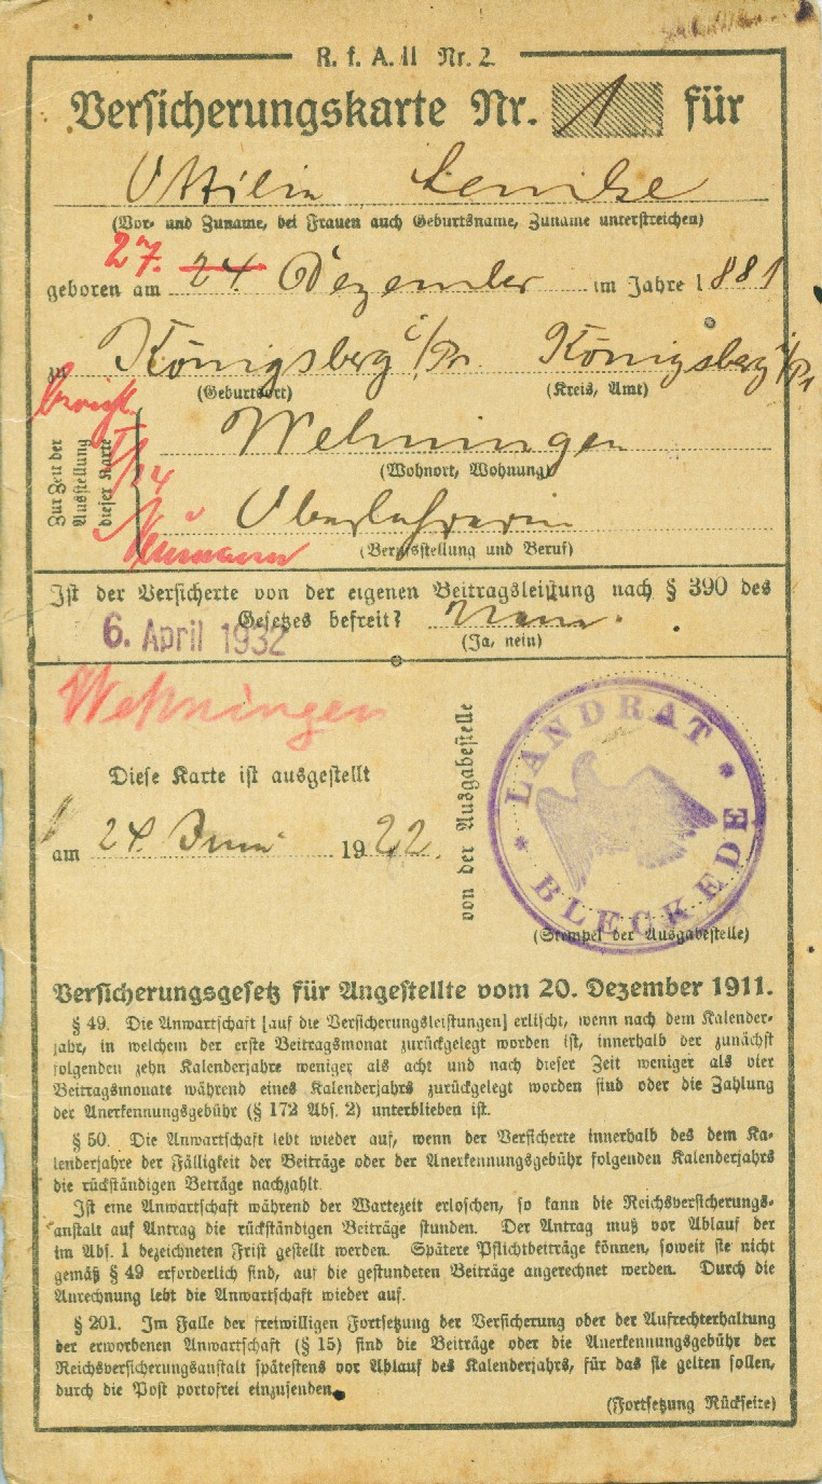 R. f. A. II Nr. 2
Versicherungskarte Nr. 1 für
Ottilie Lemke
(Vor- und Zuname, bei Frauen auch Geburtsname, Zuname unterstreichen)
27.
geboren am 24. Dezember im Jahre 1881
zu Königsberg i/Pr. Königsberg i/Pr
(Geburtsort) (Kreis, Amt)
Zur Zeit der Ausstellung dieser Karte
Wehningen
(Wohnort, Wohnung)
Oberlehrerin
(Berufsstellung und Beruf)
Neumann
Ist der Versicherte von der eigenen Beitragsleistung nach § 390 des
Gesetzes befreit? Nein.
(Ja, nein)
6. April 1932
Wehningen
Diese Karte ist ausgestellt
am 24. Juni 1922.
von der Ausgabestelle
LANDRAT
* BLECKEDE *
(Stempel der Ausgabestelle)
Versicherungsgesetz für Angestellte vom 20. Dezember 1911.
§ 49. Die Anwartschaft [auf die Versicherungsleistungen] erlischt, wenn nach dem Kalender-
jahr, in welchem der erste Beitragsmonat zurückgelegt worden ist, innerhalb der zunächst
folgenden zehn Kalenderjahre weniger als acht und nach dieser Zeit weniger als vier
Beitragsmonate während eines Kalenderjahrs zurückgelegt worden sind oder die Zahlung
der Anerkennungsgebühr (§ 172 Abs. 2) unterblieben ist.
§ 50. Die Anwartschaft lebt wieder auf, wenn der Versicherte innerhalb des dem Ka-
lenderjahre der Fälligkeit der Beiträge oder der Anerkennungsgebühr folgenden Kalenderjahrs
die rückständigen Beträge nachzahlt.
Ist eine Anwartschaft während der Wartezeit erloschen, so kann die Reichsversicherungs-
anstalt auf Antrag die rückständigen Beiträge stunden. Der Antrag muß vor Ablauf der
im Abs. 1 bezeichneten Frist gestellt werden. Spätere Pflichtbeiträge können, soweit sie nicht
gemäß § 49 erforderlich sind, auf die gestundeten Beiträge angerechnet werden. Durch die
Anrechnung lebt die Anwartschaft wieder auf.
§ 201. Im Falle der freiwilligen Fortsetzung der Versicherung oder der Aufrechterhaltung
der erworbenen Anwartschaft (§ 15) sind die Beiträge oder die Anerkennungsgebühr der
Reichsversicherungsanstalt spätestens vor Ablauf des Kalenderjahrs, für das sie gelten sollen,
durch die Post portofrei einzusenden.
(Fortsetzung Rückseite)